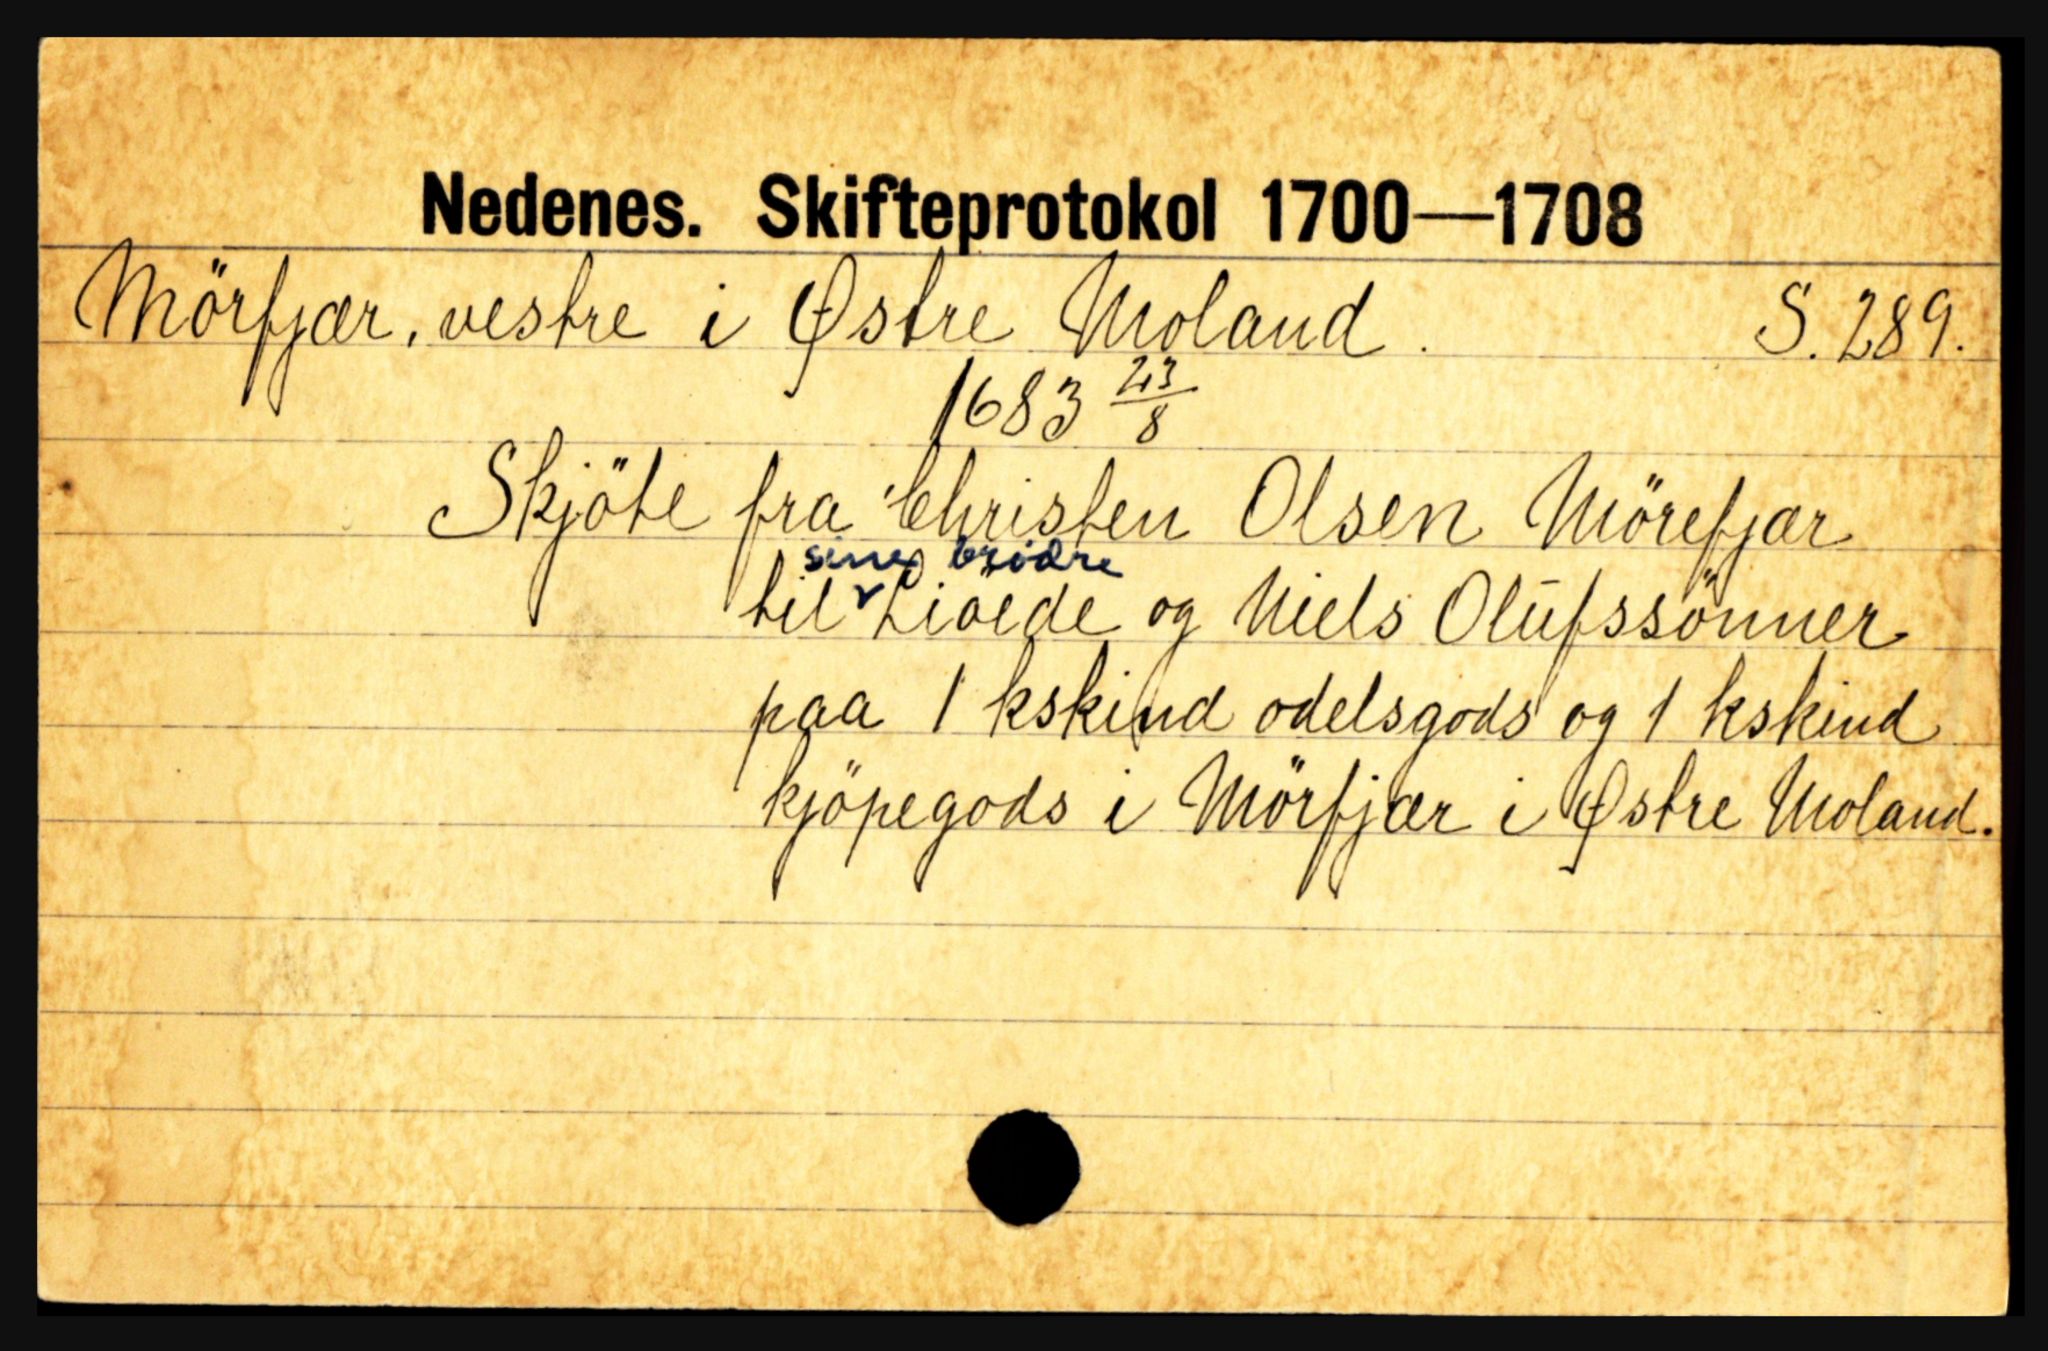 Nedenes. Skifteprotokol 1700—1708
Mörfjær, vestre i Østre Moland. S. 289.
1683 23/8
Skjöte fra Christen Olsen Mörefjær
sine brödre
til Lioede og Niels Olüfssönner
paa 1 kskind odelsgods og 1 kskind
kjöpegods i Mörfjær i Østre Moland.